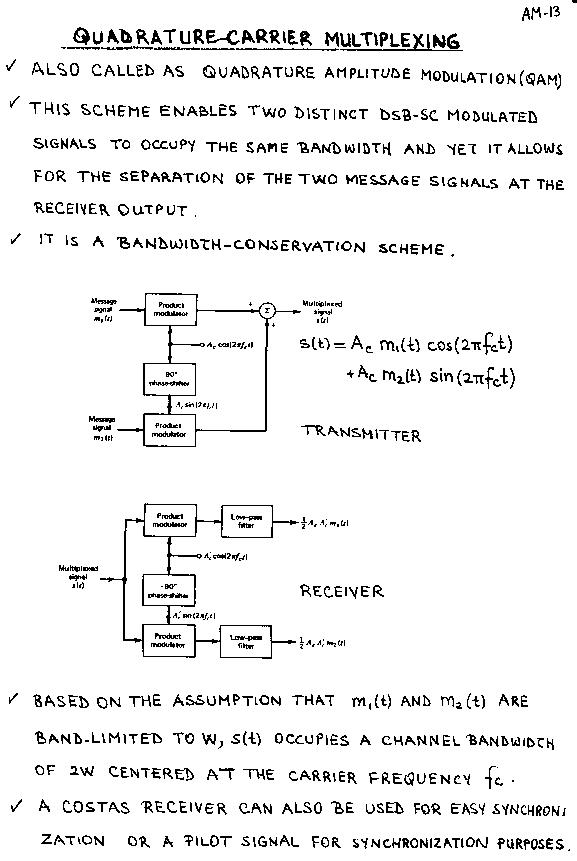 AM-13
QUADRATURE-CARRIER MULTIPLEXING
✓ ALSO CALLED AS QUADRATURE AMPLITUDE MODULATION (QAM)
✓ THIS SCHEME ENABLES TWO DISTINCT DSB-SC MODULATED
SIGNALS TO OCCUPY THE SAME BANDWIDTH AND YET IT ALLOWS
FOR THE SEPARATION OF THE TWO MESSAGE SIGNALS AT THE
RECEIVER OUTPUT.
✓ IT IS A BANDWIDTH-CONSERVATION SCHEME.
Message
signal
m₁(t)
Product
modulator
+
Σ
+
Multiplexed
signal
s(t)
A_c cos(2πf_ct)
-90°
phase-shifter
A_c sin(2πf_ct)
Message
signal
m₂(t)
Product
modulator
s(t) = A_c m₁(t) cos(2πf_ct)
+ A_c m₂(t) sin(2πf_ct)
TRANSMITTER
Product
modulator
Low-pass
filter
½ A_c A_c' m₁(t)
A_c' cos(2πf_ct)
Multiplexed
signal
s(t)
-90°
phase-shifter
A_c' sin(2πf_ct)
Product
modulator
Low-pass
filter
½ A_c A_c' m₂(t)
RECEIVER
✓ BASED ON THE ASSUMPTION THAT m₁(t) AND m₂(t) ARE
BAND-LIMITED TO W, s(t) OCCUPIES A CHANNEL BANDWIDTH
OF 2W CENTERED AT THE CARRIER FREQUENCY f_c.
✓ A COSTAS RECEIVER CAN ALSO BE USED FOR EASY SYNCHRONI
ZATION OR A PILOT SIGNAL FOR SYNCHRONIZATION PURPOSES.